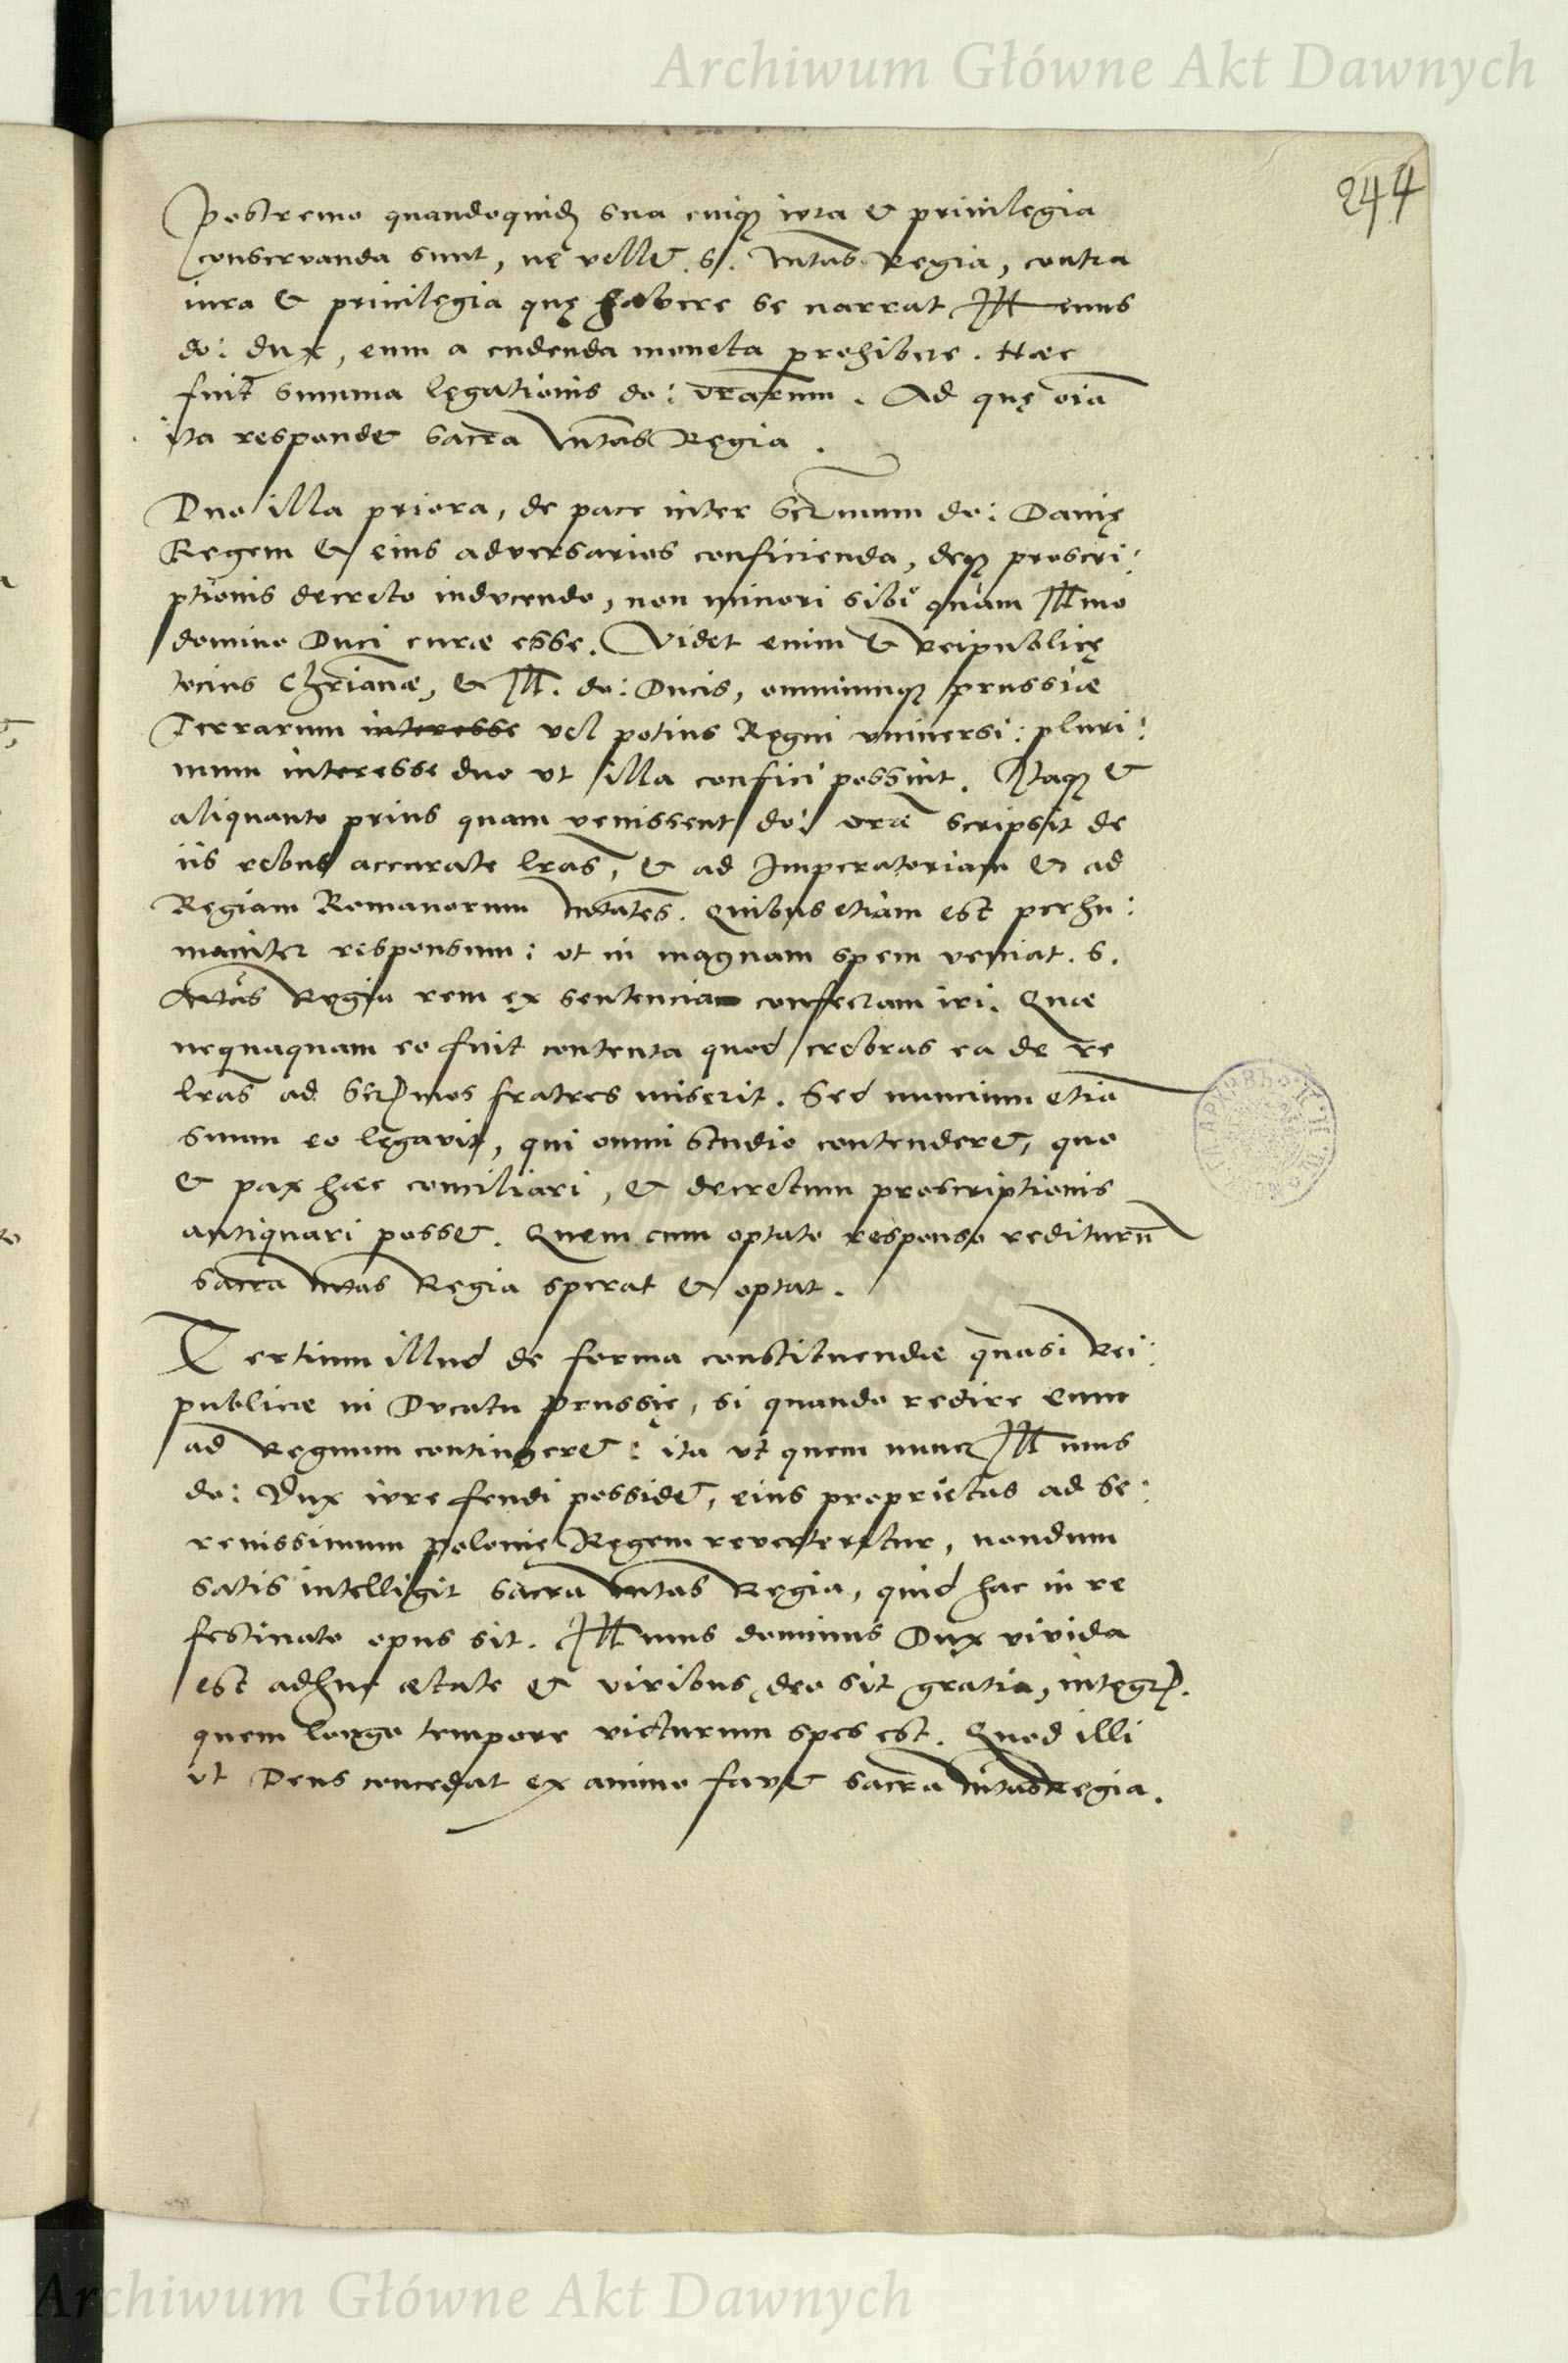 Archiwum Główne Akt Dawnych
244
Postremo quandoquid͂ sua cuiqꝫ iura & privilegia
conservanda sunt, ne vellet. S. Mtas Regia, contra
iura & privilegia quę habere se narrat Ill mus
do: dux, eum a cudenda moneta prohibere. Haec
fuit summa legationis do: vrarum. Ad quę oīa
ita respondet sacra Mtas Regia.
Duo illa priora, de pace inter Serᵐmum do: Danię
Regem & eius adversarios conficienda, deqꝫ proscri:
ptionis decreto inducendo, non minori sibi quàm Illmo
domino Duci curæ esse. Videt enim & reipublicę
tocius Chrianæ, & Ill. do: Ducis, omniumqꝫ prussiæ
Terrarum interesse vel potius Regni universi: pluri:
mum interesse duo ut illa confici possint. Itaqꝫ &
aliquanto prius quam venissent do: vrae scripsit de
iis rebus accurate lras, & ad Imperatoriam & ad
Regiam Romanorum Mtates. Quibus etiam est perhu:
maniter responsum: ut in magnam spem veniat. S.
Mtas Regia rem ex sententia confectam iri. Quæ
nequaquam eo fuit contenta quod crebras ea de re
lras ad Sermos fratres miserit. Sed nuncium etiā
suum eo legavit, qui omni studio contenderet, quo
& pax haec conciliari, & decretum proscriptionis
antiquari posset. Quem cum optato responso rediturū
sacra Mtas Regia sperat & optat.
Tertium illud de forma constituendæ quasi Rei:
publicæ in Ducatu Prussię, si quando redire eum
ad Regnum contingeret: ita ut quem nunc Ill mus
do: Dux iure feudi possidet, eius proprietas ad Se:
renissimum Polonię Regem reverteretur, nondum
satis intelligit sacra Mtas Regia, quid hac in re
festinato opus sit. Ill mus dominus Dux vivida
est adhuc ætate & viribus, deo sit gratia, integr.
quem longo tempore victurum spes est. Quod illi
ut Deus concedat ex animo favet sacra Mtas Regia.
Archiwum Główne Akt Dawnych